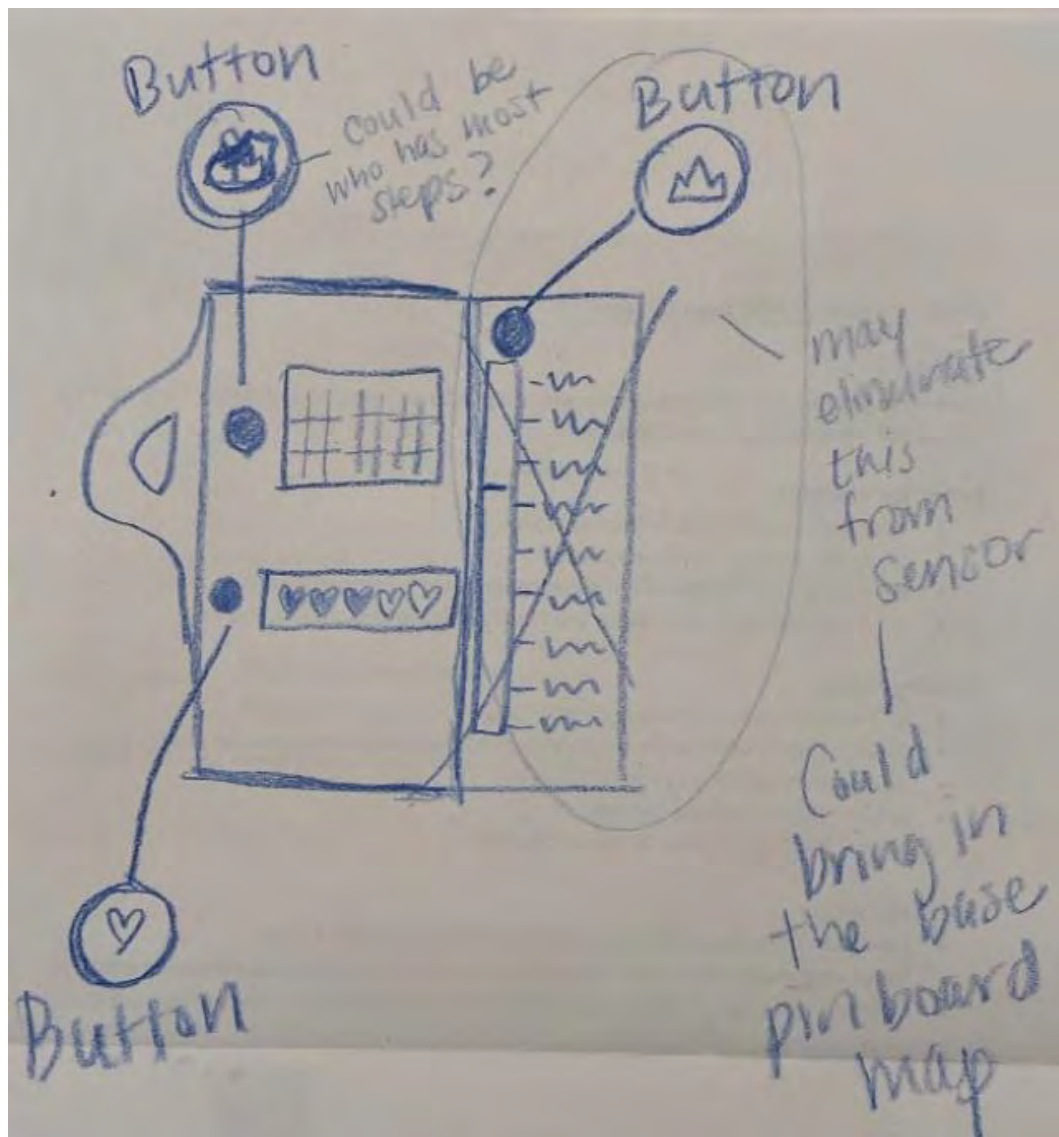 Button
could be
who has most
steps?
Button
may
eliminate
this
from
sensor
Could
bring in
the base
pin board
map
Button